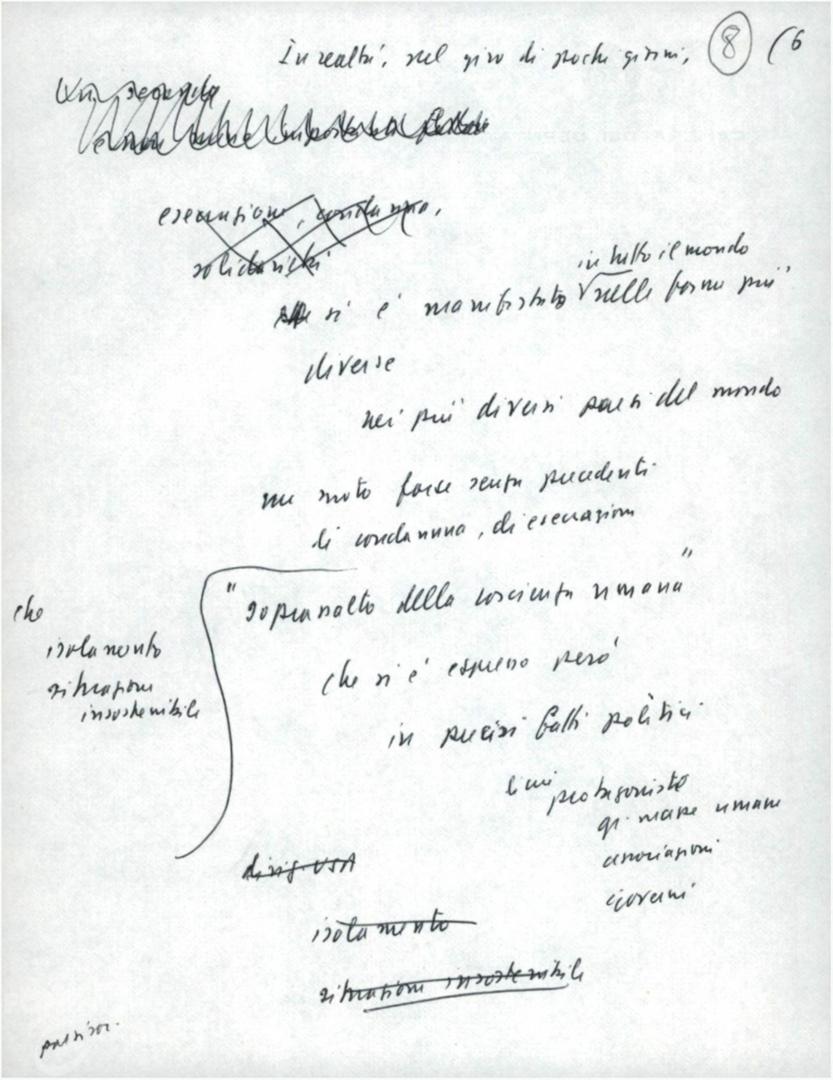 In realtà, nel giro di pochi giorni, 8 (6
Un secondo
esecrazione, condanna,
solidarietà
si è manifestato nelle forme più
in tutto il mondo
diverse
nei più diversi paesi del mondo
un moto forse senza precedenti
di condanna, di esecrazioni
"soprassalto della coscienza umana"
che
isolamento
situazione
insostenibile
che si è espresso però
in precisi fatti politici
di cui protagoniste
gr. masse umane
associazioni
giovani
dirig. USA
isolamento
situazione insostenibile